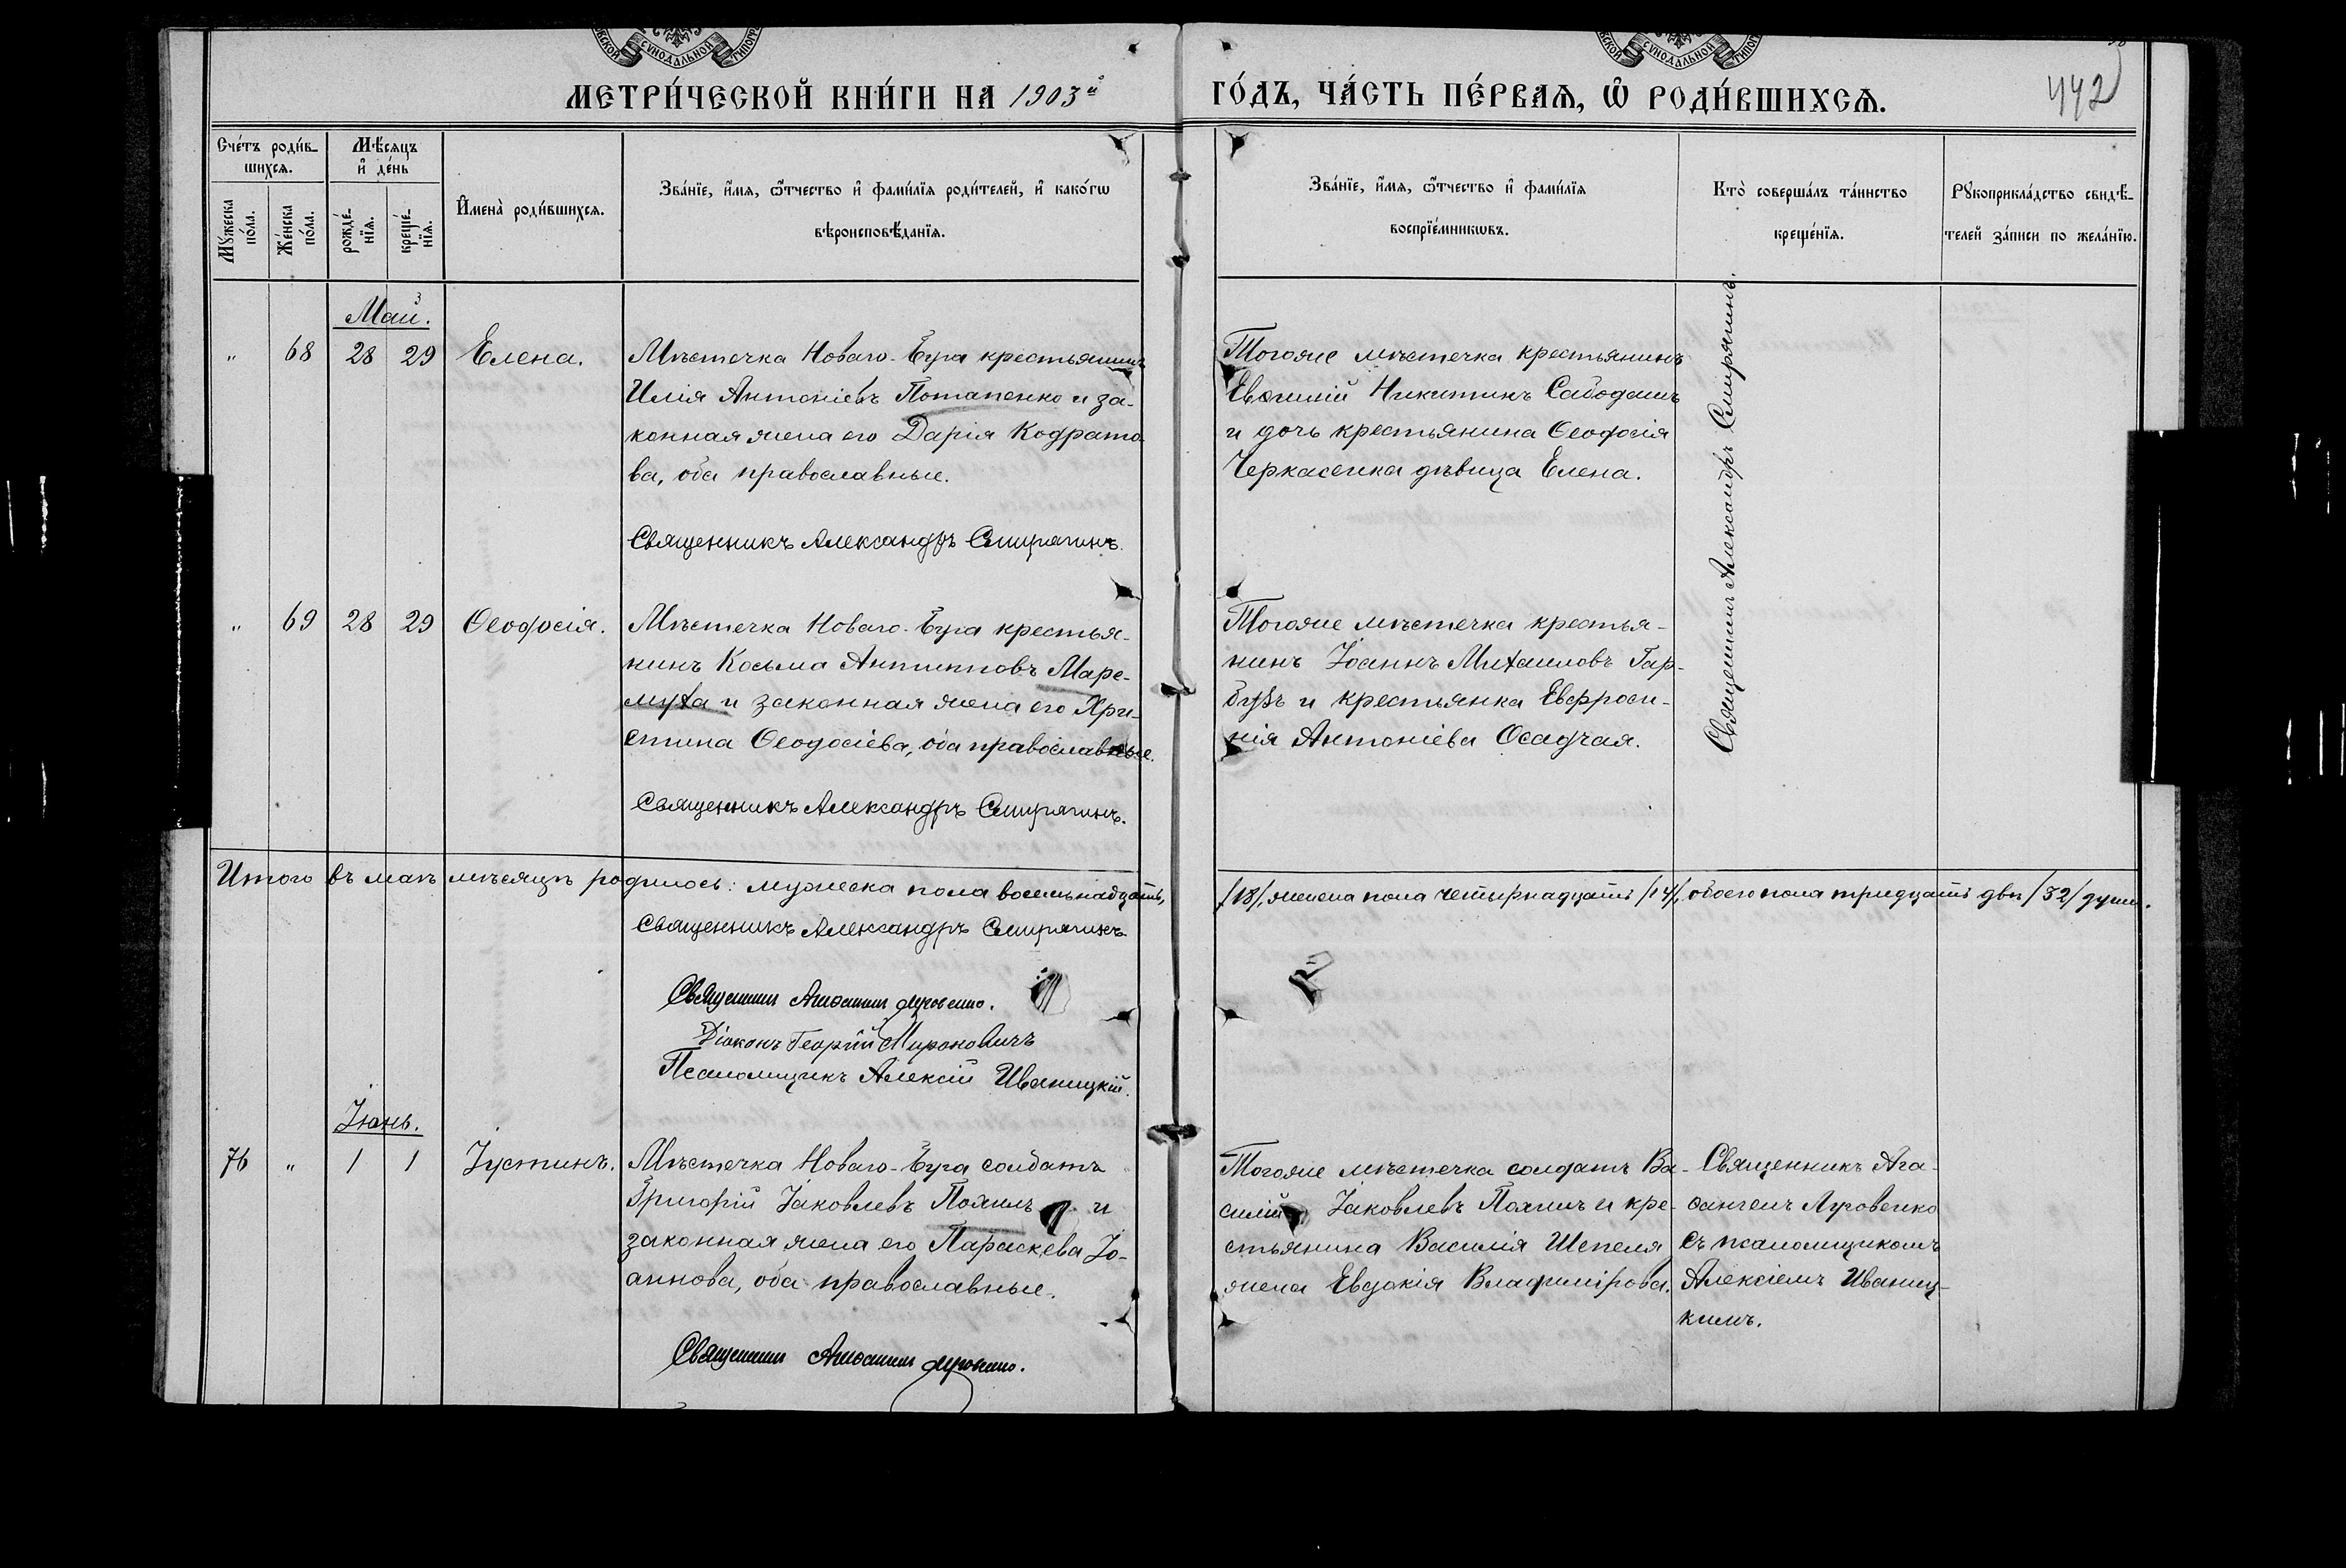 СУНОДАЛЬНОЙ
СУНОДАЛЬНОЙ
МЕТРИ́ЧЕСКОЙ КНИ́ГИ НА 1903й
ГО́ДЪ, ЧА́СТЬ ПЕ́РВАѦ, Ѽ РОДИ́ВШИХСѦ.
442
Сче́тъ роди́в-
шихсѧ.
Мѣ́сѧцъ
и҆ де́нь
Мꙋ́жеска
по́ла.
Же́нска
по́ла.
рожде́-
нїѧ.
креще́-
нїѧ.
И҆мена̀ роди́вшихсѧ.
Зва́нїе, и҆́мѧ, ѻ҆́тчество и҆ фами́лїѧ роди́телей, и҆ како́гѡ
вѣроисповѣ́данїѧ.
Зва́нїе, и҆́мѧ, ѻ҆́тчество и҆ фами́лїѧ
воспрїе́мникѡвъ.
Кто̀ соверша́лъ та́инство
креще́нїѧ.
Рꙋкоприкла́дство свидѣ́-
телей за́писи по жела́нїю.
Май.
" 68 28 29 Елена.
Мѣстечка Новаго-Буга крестьянинъ
Илія Антоніевъ Потапенко и за-
конная жена его Дарія Кодрато-
ва, оба православные.
Священникъ Александръ Смирягинъ.
Тогоже мѣстечка крестьянинъ
Евѳимій Никитинъ Сабодашъ
и дочь крестьянина Ѳеодосія
Черкасенка дѣвица Елена.
Священникъ Александръ Смирягинъ.
" 69 28 29 Ѳеодосія.
Мѣстечка Новаго-Буга крестья-
нинъ Косьма Антиповъ Маре-
муха и законная жена его Хри-
стина Ѳеодосіева, оба православные.
Священникъ Александръ Смирягинъ.
Тогоже мѣстечка крестья-
нинъ Іоаннъ Михаиловъ Гар-
бузъ и крестьянка Евфроси-
нія Антоніева Осадчая.
Итого въ маѣ мѣсяцѣ родилось: мужеска пола восемьнадцать,
/18/, женска пола четырнадцать /14/, обоего пола тридцать двѣ /32/ души.
Священникъ Александръ Смирягинъ
Священникъ Агаѳангелъ Луговенко.
Діаконъ Георгій Мироновичъ
Псаломщикъ Алексій Иваницкій.
Іюнь.
76 " 1 1 Іустинъ.
Мѣстечка Новаго-Буга солдатъ
Григорій Іаковлевъ Похилъ и
законная жена его Параскева Іо-
аннова, оба православные.
Священникъ Агаѳангелъ Луговенко.
Тогоже мѣстечка солдатъ Ва-
силій Іаковлевъ Похилъ и кре-
стьянина Василія Шепеля
жена Евдокія Владимірова.
Священникъ Ага-
ѳангелъ Луговенко
съ псаломщикомъ
Алексіемъ Иваниц-
кимъ.